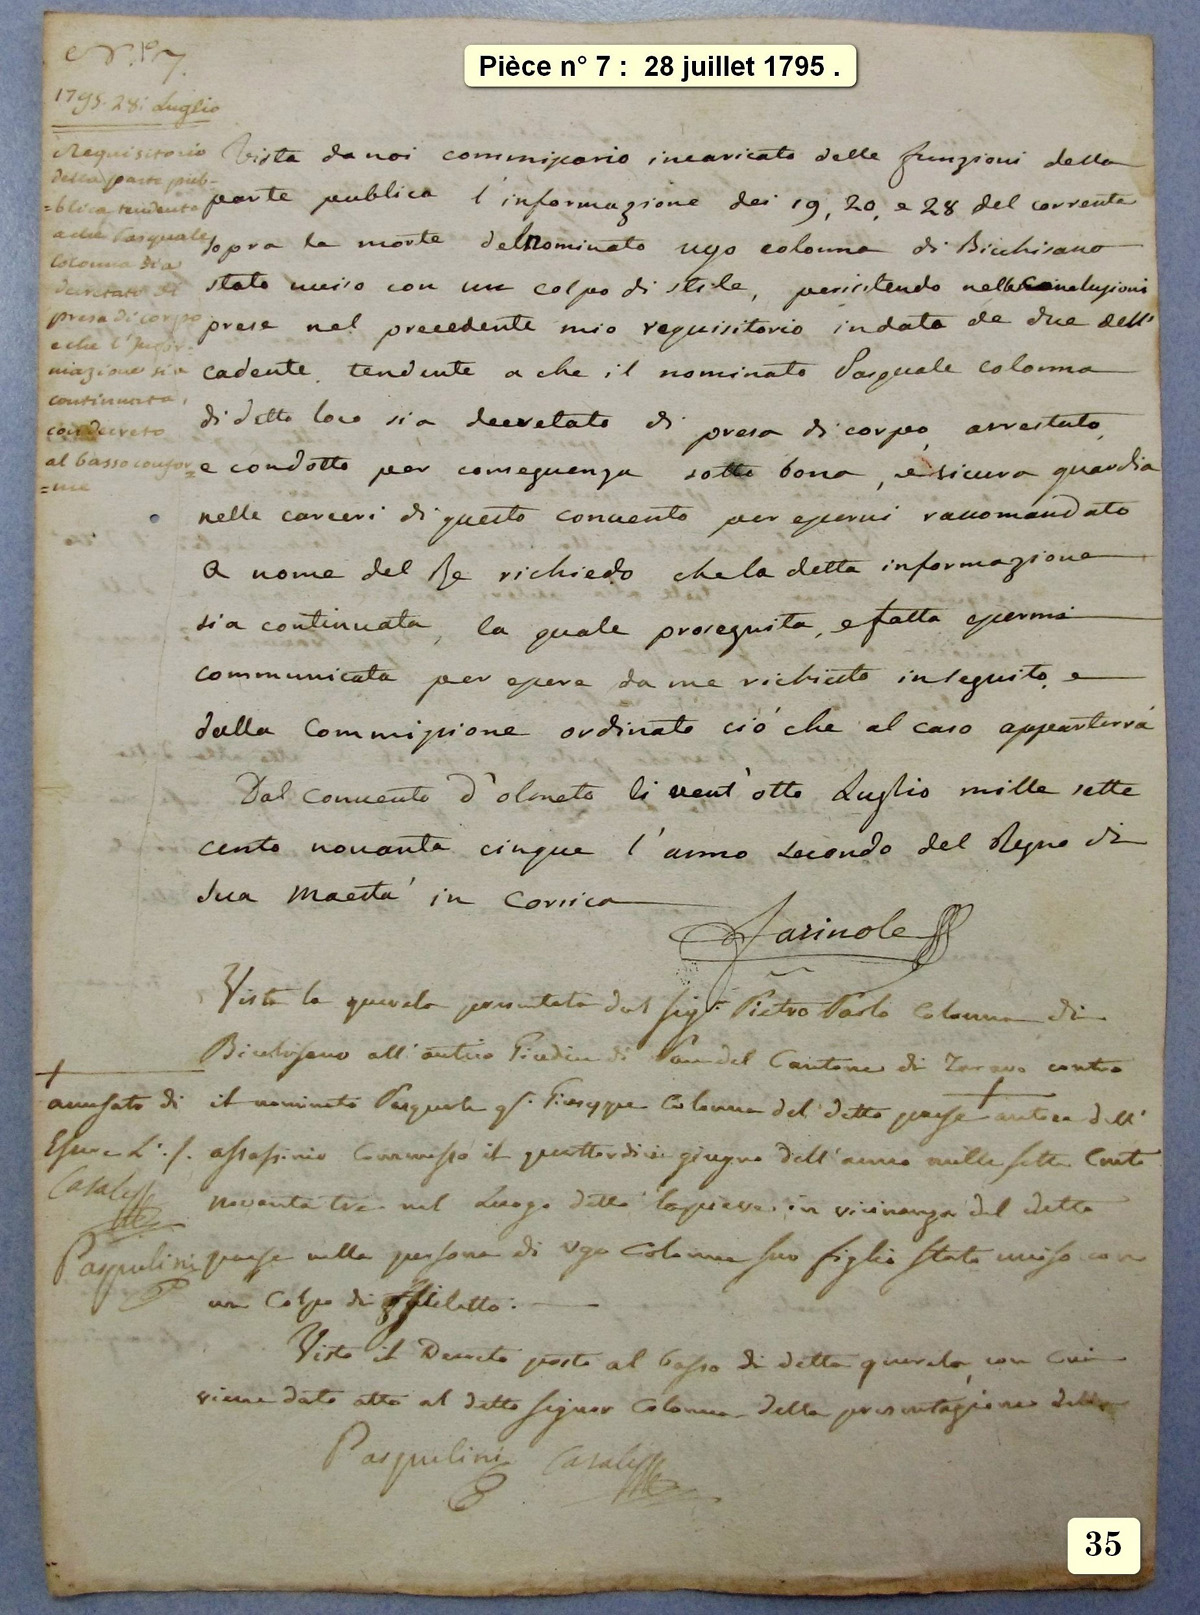 Pièce n° 7 : 28 juillet 1795 .
N.º 7.
1795. 28: Luglio
Requisitorio
della parte pub-
=blica tendente
a che Pasquale
Colonna sia
decretato di
presa di corpo
e che l'Infor-
mazione sia
continuata,
con decreto
al basso confor=
=me
Vista da noi commissario incaricato delle funzioni della
parte publica l'informazione dei 19, 20, e 28 del corrente
sopra la morte del nominato ugo colonna di Bicchisano
stato uciso con un colpo di stile, persistendo nelle conclusioni
prese nel precedente mio requisitorio in data de due dell'
cadente tendente a che il nominato Pasquale colonna
di detto loco sia decretato di presa di corpo, arrestato,
e condotto per conseguenza sotto bona, e sicura guardia
nelle carceri di questo convento per esservi raccomandato
A nome del Re richiedo che la detta informazione
sia continuata, la quale proseguita, e fatta essermi
communicata per essere da me richiesto in seguito, e
dalla Commissione ordinato ció che al caso appartterrá
Dal convento d'olmeto li vent'otto Luglio mille sette
cento novanta cinque l'anno secondo del Regno di
sua Maestá in Corsica
Farinole
Vista la querela presentata dal Sig.r Pietro Paolo Colonna di
Bicchisano all'antico Giudice di Pace del Cantone di Taravo contro
il nominato Pasquale q.m Giuseppe Colonna del detto paese autore dell'
accusato di
Essere L'. f.
Casalta
Pasqualini
assassinio Commesso il quattordici giugno dell'anno mille sette Cento
novanta tre nel Luogo detto in vicinanza del detto
paese nella persona di Ugo Colonna suo figlio stato uciso con
un Colpo di stiletto.
Visto il Decreto posto al basso di detta querela, con Cui
viene dato atto al detto signor Colonna della presentazione della
Pasqualini Casalta
35